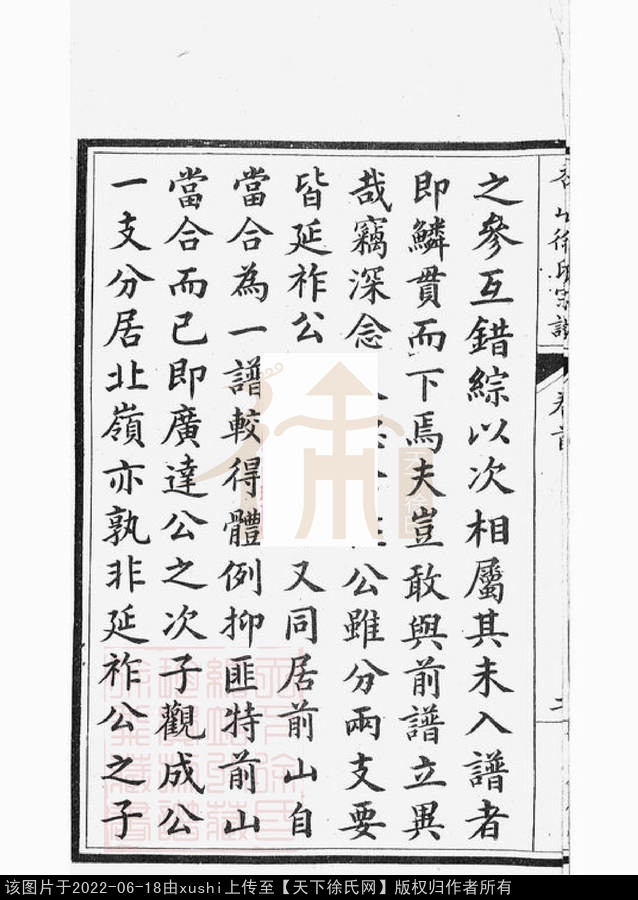 徐氏宗譜
卷首
二
之參互錯綜以次相屬其未入譜者
即鱗貫而下焉夫豈敢與前譜立異
哉竊深念公雖分兩支要
皆延祚公又同居前山自
當合為一譜較得體例抑匪特前山
當合而已即廣達公之次子觀成公
一支分居北嶺亦孰非延祚公之子
该图片于2022-06-18由xushi上传至【天下徐氏网】版权归作者所有